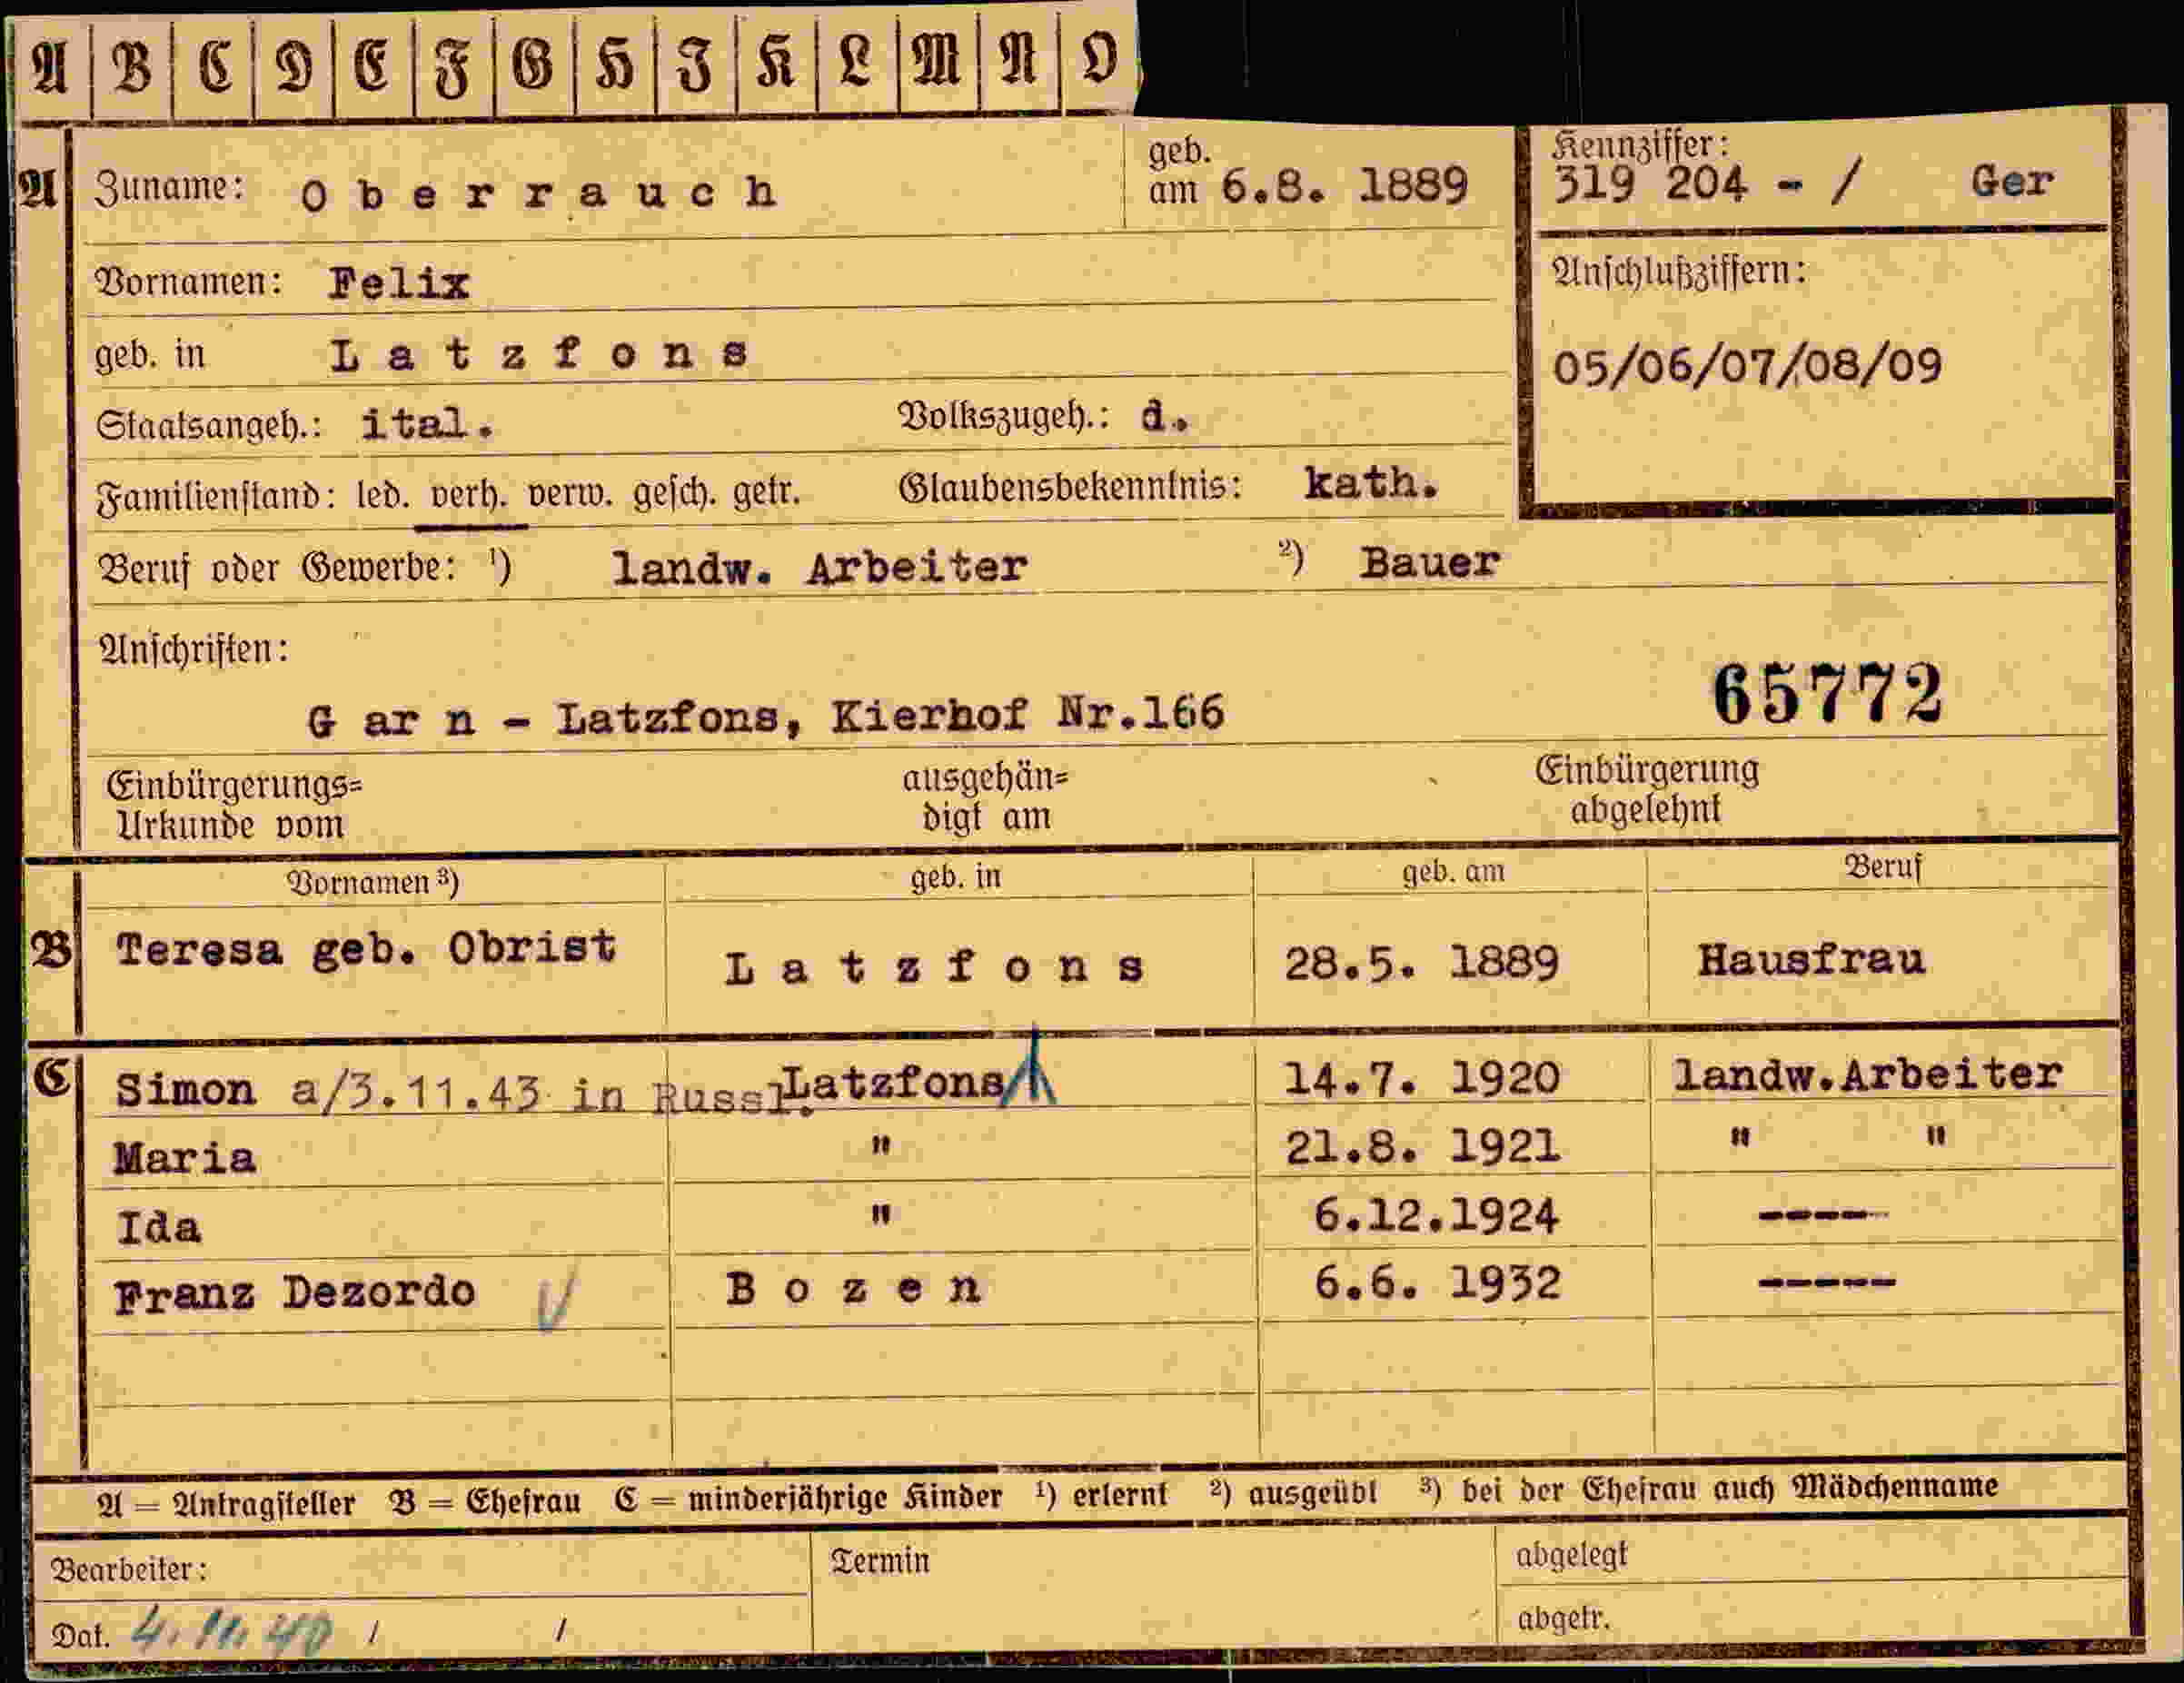 A B C D E F G H I K L M N O
A Zuname: Oberrauch geb. am 6.8. 1889
Kennziffer:
319 204 - / Ger
Vornamen: Felix
Anschlußziffern:
geb. in Latzfons
05/06/07/08/09
Staatsangeh.: ital. Volkszugeh.: d.
Familienstand: led. verh. verw. gesch. getr. Glaubensbekenntnis: kath.
Beruf oder Gewerbe: ¹) landw. Arbeiter ²) Bauer
Anschriften:
65772
Garn - Latzfons, Kierhof Nr.166
Einbürgerungs= ausgehän= Einbürgerung
Urkunde vom digt am abgelehnt
Vornamen ³) geb. in geb. am Beruf
B Teresa geb. Obrist Latzfons 28.5. 1889 Hausfrau
C Simon a/3.11.43 in Russl. Latzfons 14.7. 1920 landw.Arbeiter
Maria " 21.8. 1921 " "
Ida " 6.12.1924 -----
Franz Dezordo Bozen 6.6. 1932 -----
A = Antragsteller B = Ehefrau C = minderjährige Kinder ¹) erlernt ²) ausgeübt ³) bei der Ehefrau auch Mädchenname
Bearbeiter: Termin abgelegt
Dat. 4. 11. 40 / / abgetr.